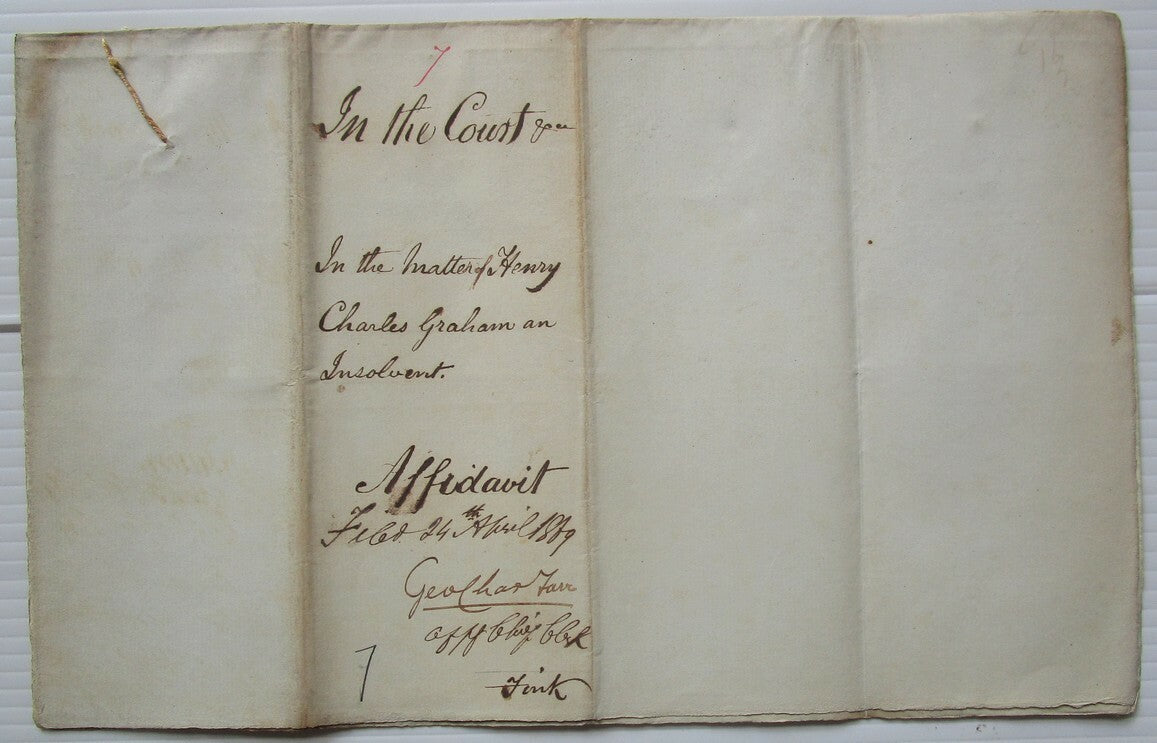 7
In the Court &ca
In the Matter of Henry
Charles Graham an
Insolvent.
Affidavit
Filed 24th April 1869
Geo Chas Farr
Chief Clerk
Fink
7